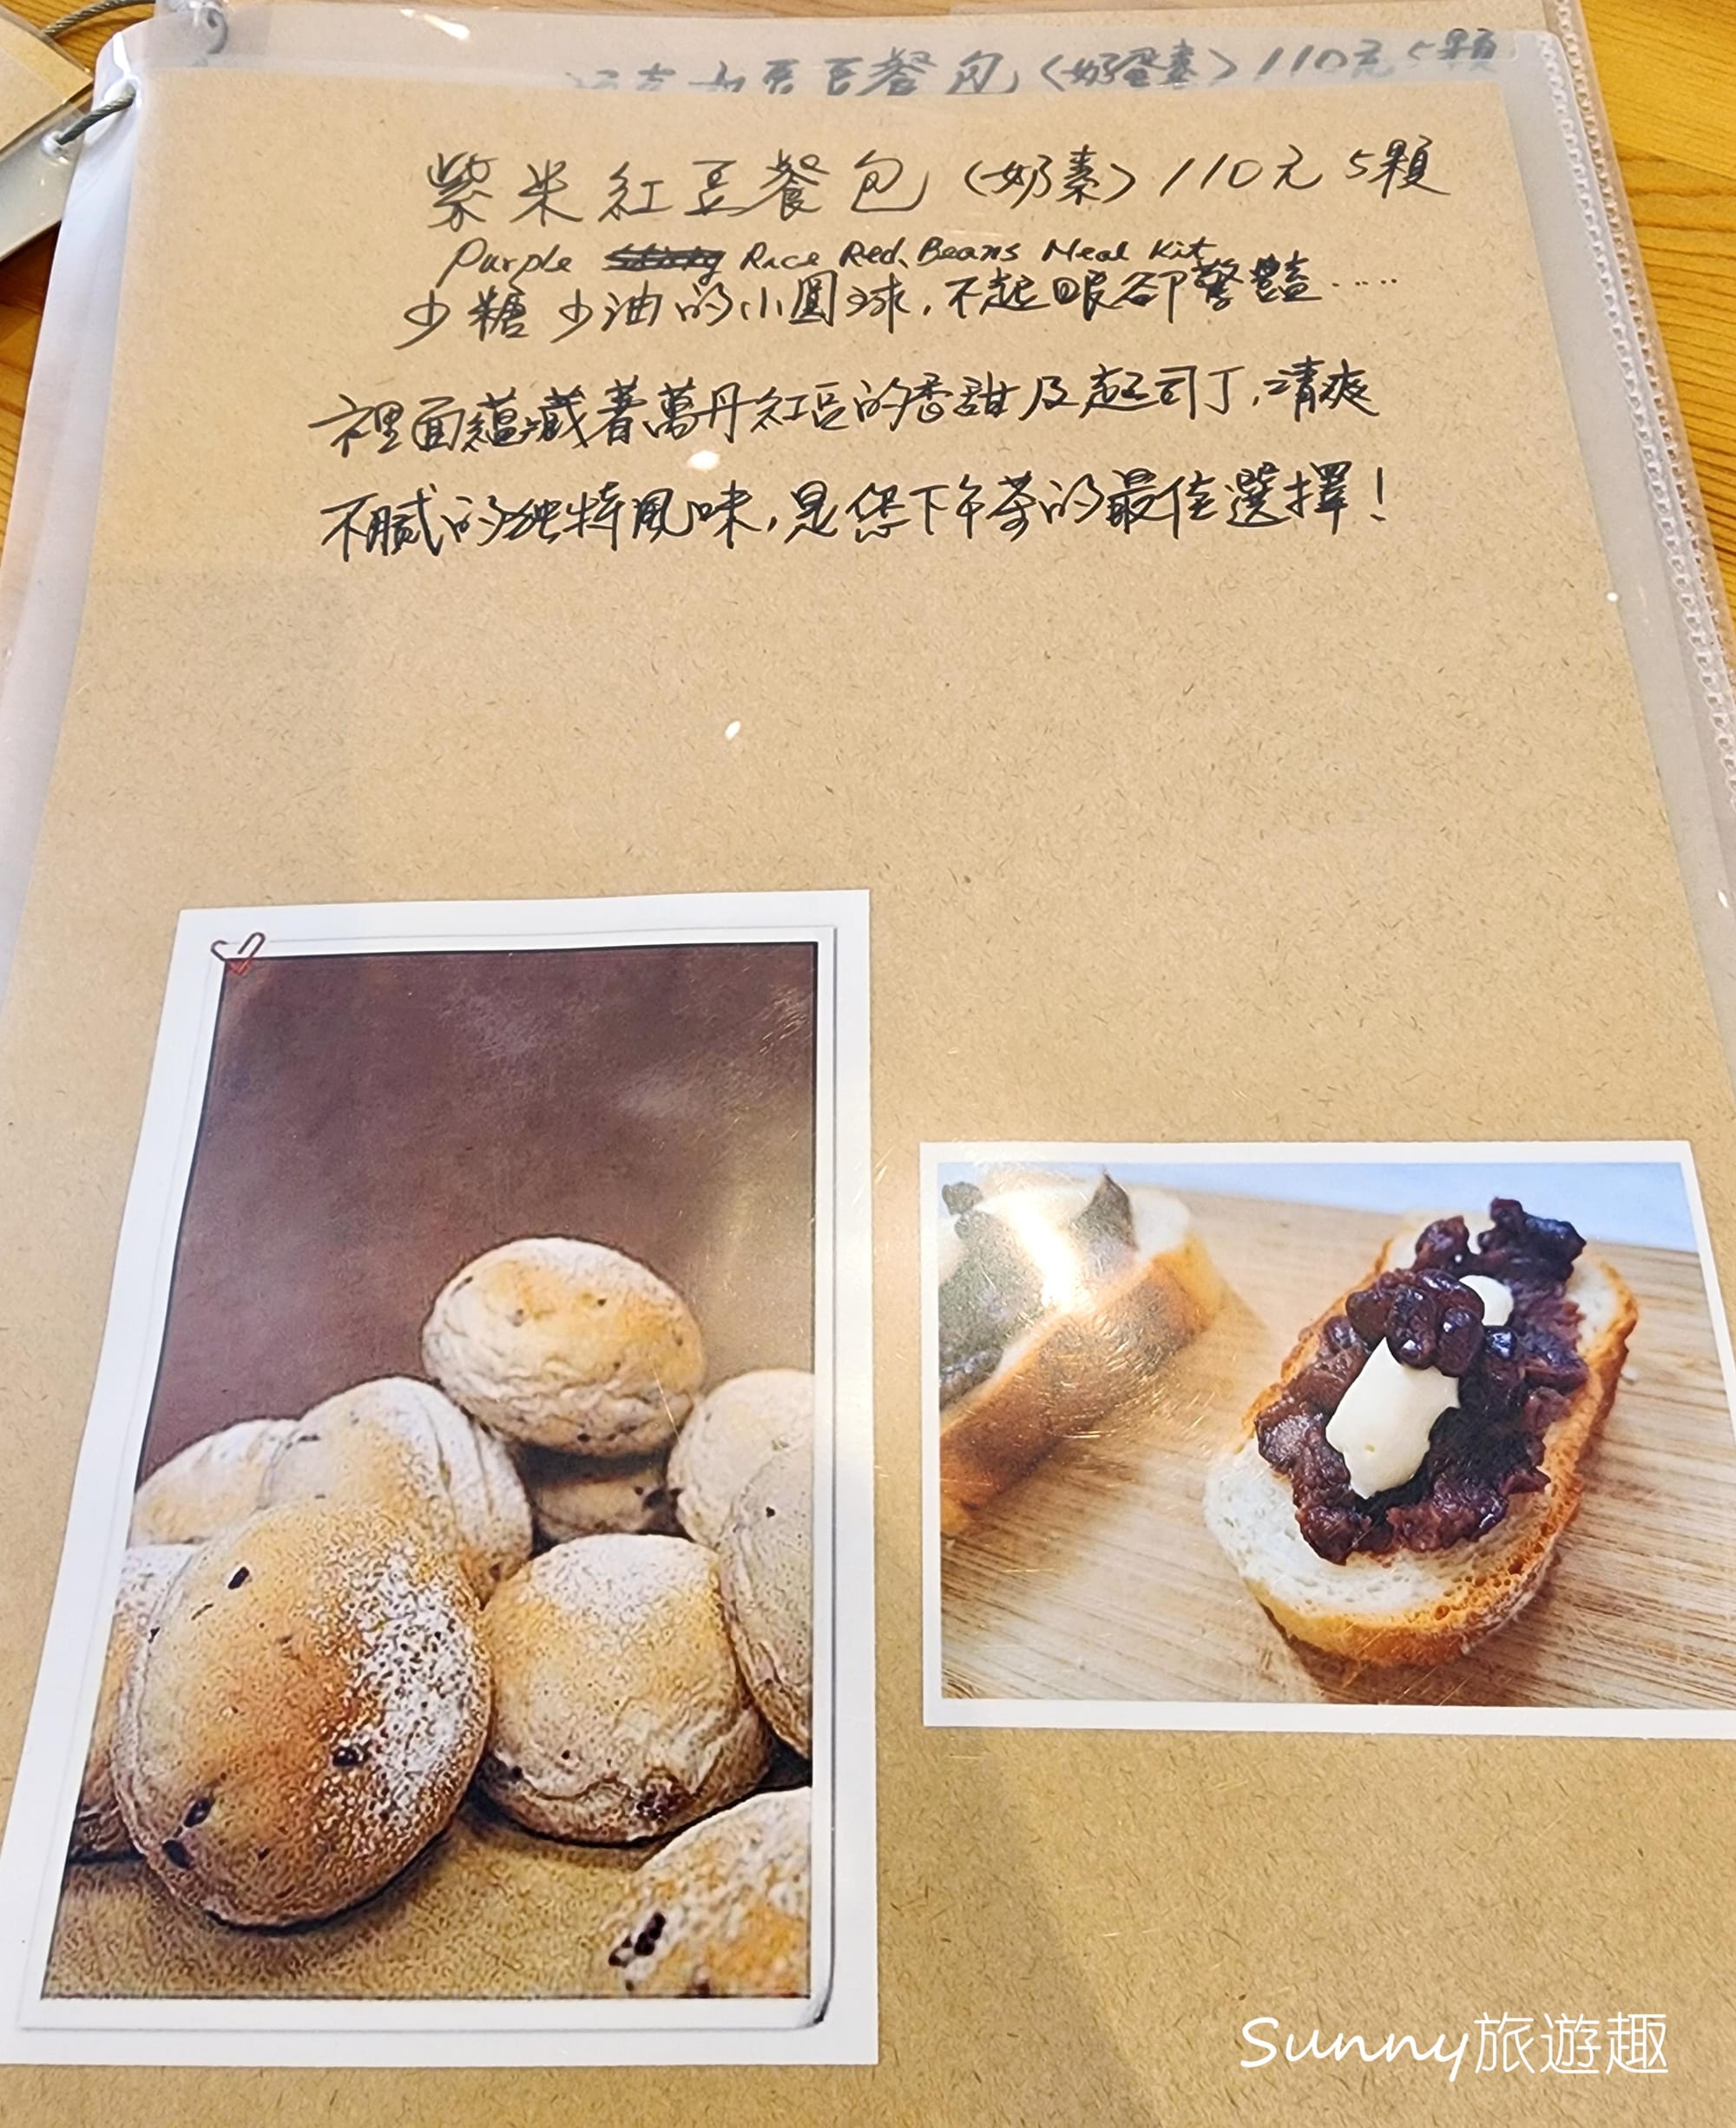 豆餐包（奶蛋素）110元5顆
紫米紅豆餐包（奶素）110元5顆
Purple Rice Red Beans Meal Kit
少糖少油的小圓球，不起眼卻驚豔.....
裡面蘊藏著萬丹紅豆的香甜及起司丁，清爽
不膩的独特風味，是您下午茶的最佳選擇！
Sunny旅遊趣